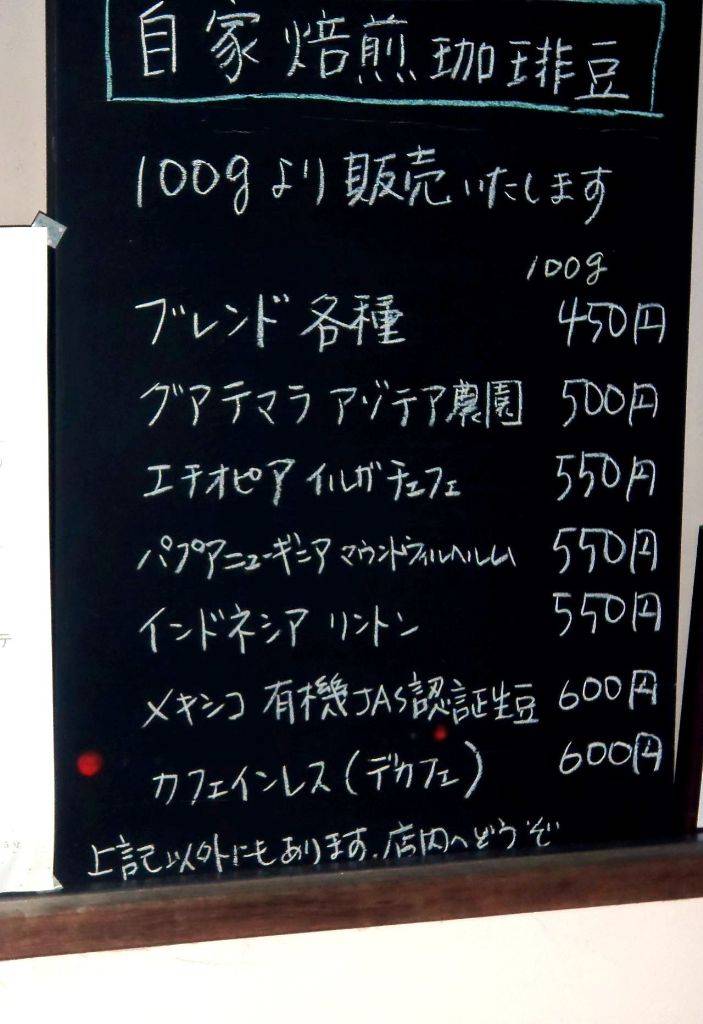 自家焙煎珈琲豆
100gより販売いたします
100g
ブレンド 各種 450円
グアテマラ アゾテア農園 500円
エチオピア イルガチェフェ 550円
パプアニューギニア マウントウィルヘルム 550円
インドネシア リントン 550円
メキシコ 有機JAS認証生豆 600円
カフェインレス(デカフェ) 600円
上記以外にもあります.店内へどうぞ